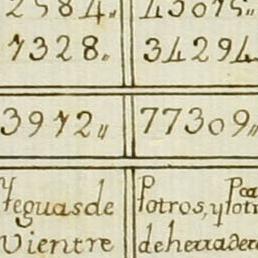 2584„ 43015„
7328„ 34294
3972„ 77309„
Yeguas de Potros, y Potr
Vientre de herradero